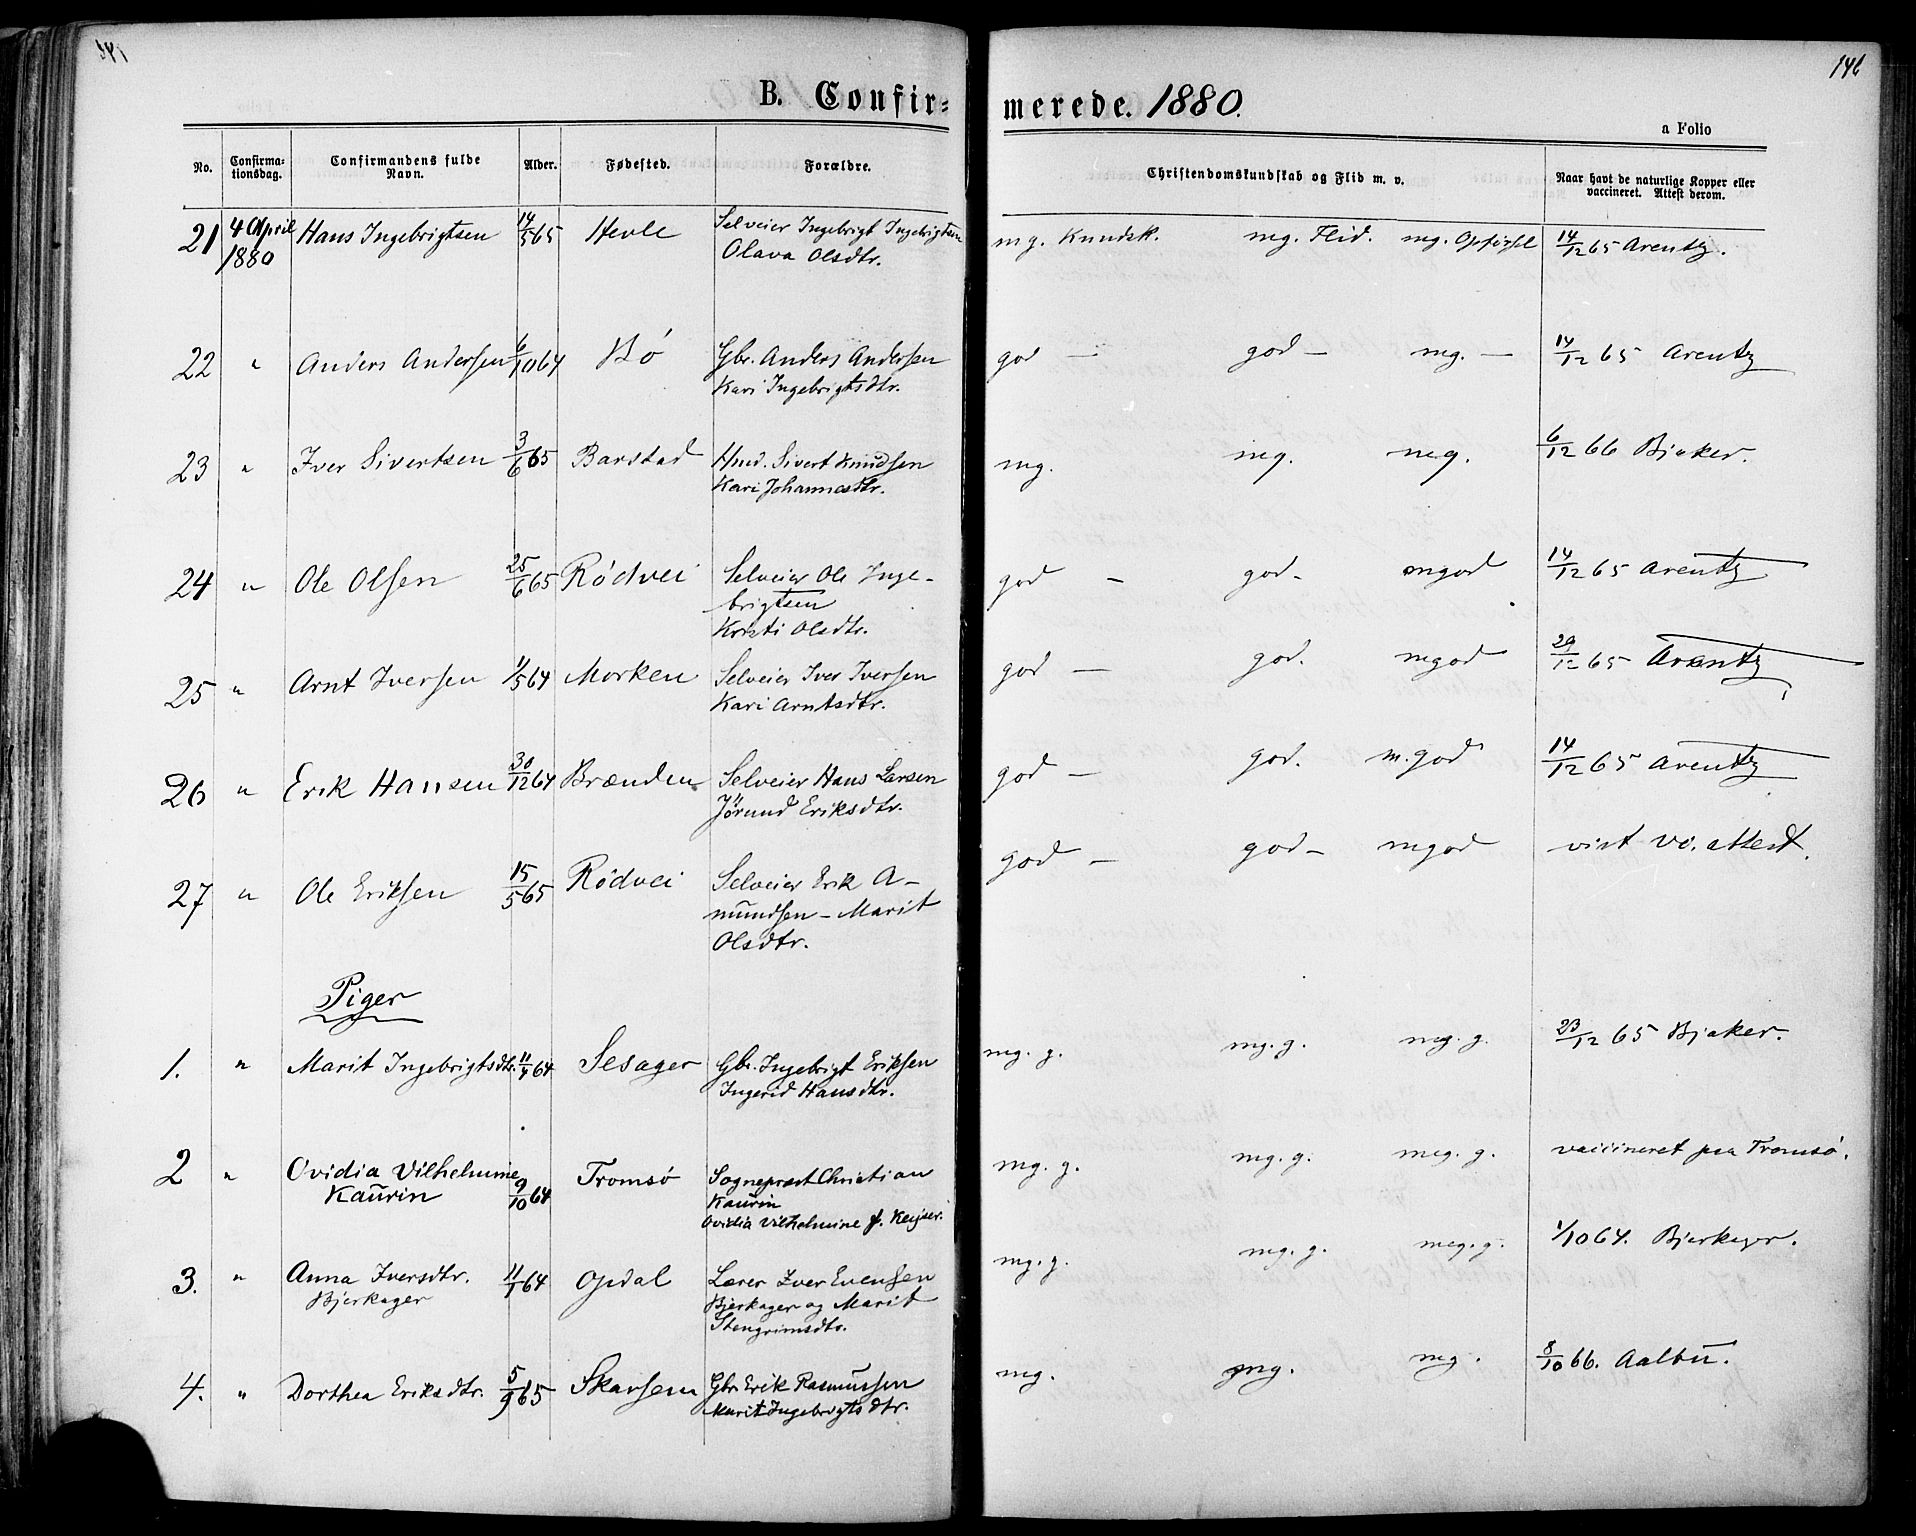 146
B. Confir-
merede. 1880.
a Folio
No.
Confirma-
tionsdag.
Confirmandens fulde
Navn.
Alder.
Fødested.
Forældre.
Christendomskundskab og Flid m. v.
Naar havt de naturlige Kopper eller
vaccineret. Attest derom.
21 4 April 1880 Hans Ingebrigtsen 14/5 65 Hevle Selveier Ingebrigt Ingebrigtsen mg. Kundsk. mg. Flid. mg. Opførsel 14/12 65 Arentz.
Olava Olsdtr.
22 " Anders Andersen 6/10 64 Bø Gbr. Anders Andersen god — god — mg. — 14/12 65 Arentz
Kari Ingebrigtsdtr.
23 " Iver Sivertsen 3/6 65 Barstad Hmd. Sivert Knudsen mg. mg. mg. 6/12 66 Bjaker.
Kari Johannesdtr.
24 " Ole Olsen 25/6 65 Rødvei Selveier Ole Inge- god — god - mgod 14/12 65 Arentz
brigtsen
Kristi Olsdtr.
25 " Arnt Iversen 11/5 64 Morken Selveier Iver Iversen god — god. mgod 29/12 65 Arentz
Kari Arntsdtr.
26 " Erik Hansen 30/12 64 Brænden Selveier Hans Larsen god — god. m.god 14/12 65 Arentz
Jörund Eriksdtr.
27 " Ole Eriksen 15/5 65 Rødvei Selveier Erik A- god — god — mgod vist va. attest.
mundsen - Marit
Olsdtr.
Piger
1. " Marit Ingebrigtsdtr. 11/4 64 Sesager Gbr. Ingebrigt Eriksen mg. g. mg. g. mg. g. 23/12 65 Bjaker.
Ingerid Hansdtr.
2 " Ovidia Vilhelmine 9/10 64 Tromsø Sognepræst Christian mg. g. mg. g. mg. g. vaccineret paa Tromsø.
Kaurin Kaurin
Ovidia Vilhelmine f. Keyser.
3. " Anna Iversdtr. 11/1 64 Opdal Lærer Iver Evensen mg. g. mg. g. mg. g. 1/10 64. Bjerkager.
Bjerkager Bjerkager og Marit
Stengrimsdtr.
4. " Dorthea Eriksdtr. 5/9 65 Skarsem Gbr. Erik Rasmussen mg. mg. mg. 8/10 66. Aalbu.
Marit Ingebrigtsdtr.